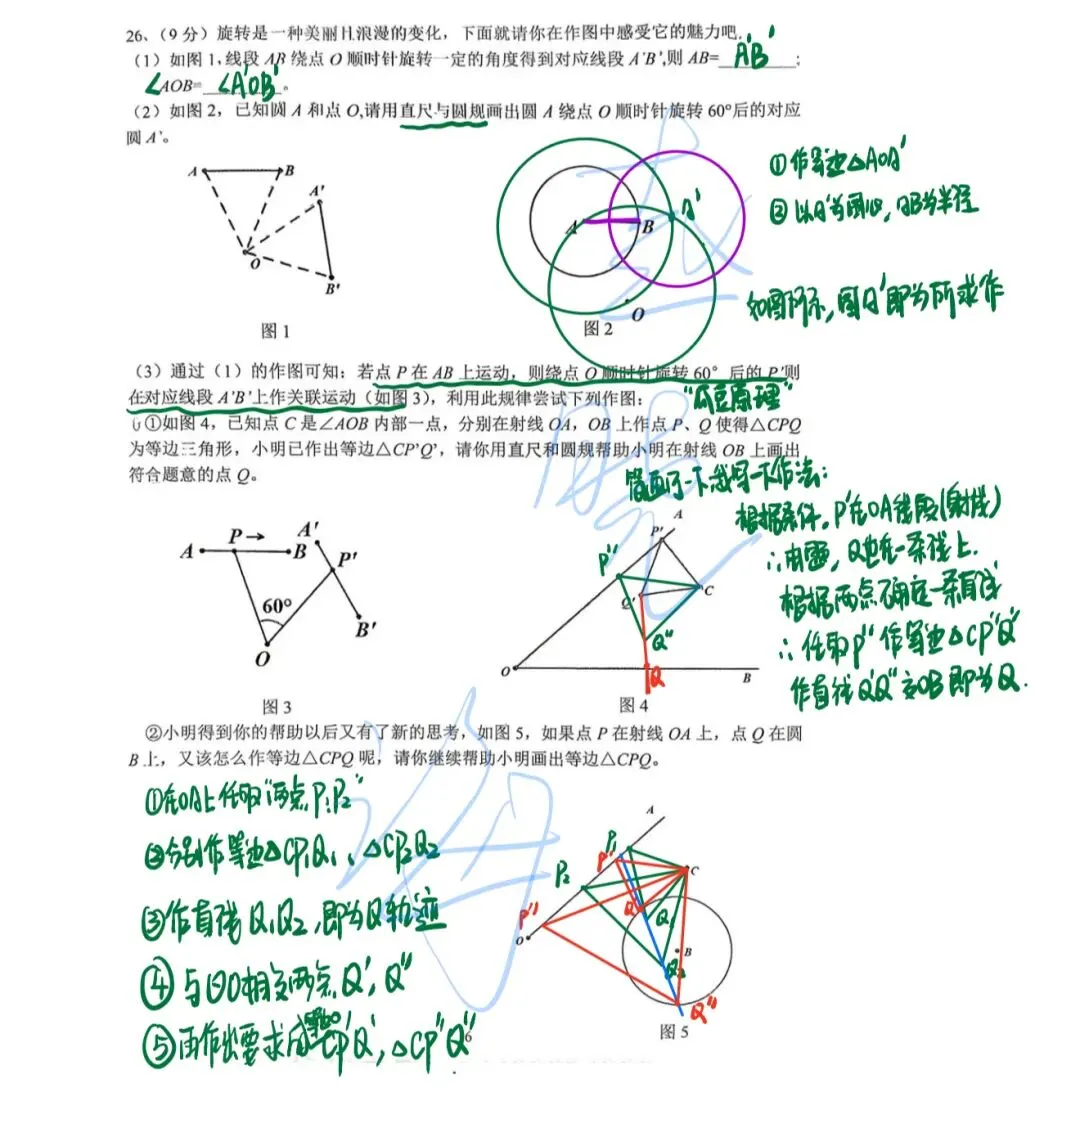 26、（9 分）旋转是一种美丽且浪漫的变化，下面就请你在作图中感受它的魅力吧.
（1）如图 1，线段 AB 绕点 O 顺时针旋转一定的角度得到对应线段 A'B',则 AB= A'B' ;
∠AOB= ∠A'OB' 。
（2）如图 2，已知圆 A 和点 O,请用直尺与圆规画出圆 A 绕点 O 顺时针旋转 60°后的对应
圆 A'。
A B A' O B'
图 1
A B A' O
图 2
①作等边△AOA'
②以A'为圆心，AB为半径
如图所示，圆A'即为所求作
（3）通过（1）的作图可知：若点 P 在 AB 上运动，则绕点 O 顺时针旋转 60° 后的 P'则
在对应线段 A'B'上作关联运动（如图 3），利用此规律尝试下列作图：
"瓜豆原理"
①如图 4，已知点 C 是∠AOB 内部一点，分别在射线 OA，OB 上作点 P、Q 使得△CPQ
为等边三角形，小明已作出等边△CP'Q'，请你用直尺和圆规帮助小明在射线 OB 上画出
符合题意的点 Q。
简画了一下我写一下作法：
根据条件，P'在OA线段(射线)
∴由题，Q也在一条线上.
根据两点确定一条直线
∴任取P''作等边△CP''Q''
作直线Q'Q''交OB即为Q.
A P → B A' P' 60° B' O
图 3
A P' P'' C Q' Q'' O Q B
图 4
②小明得到你的帮助以后又有了新的思考，如图 5，如果点 P 在射线 OA 上，点 Q 在圆
B 上，又该怎么作等边△CPQ 呢，请你继续帮助小明画出等边△CPQ。
①在OA上任取两点P₁P₂
②分别作等边△CP₁Q₁、△CP₂Q₂
③作直线Q₁Q₂,即为Q轨迹
④与⊙O相交两点Q',Q''
⑤再作出要求成等边CP'Q',△CP''Q''
A P₁ P' P₂ C P'' Q' Q₁ O B Q₂ Q''
图 5
6